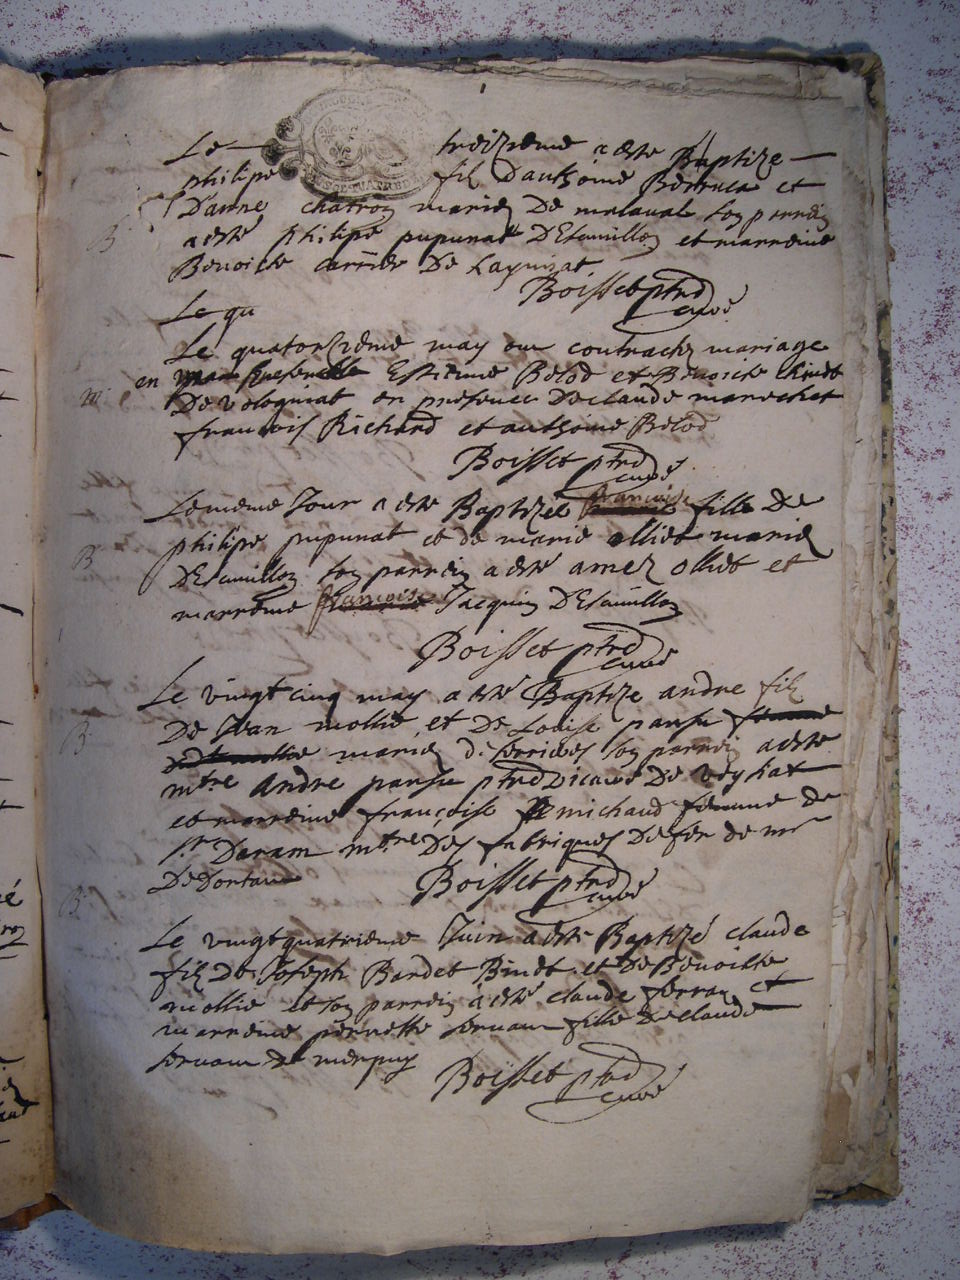 Le treizieme a esté Baptize
philipe fil d'anthoine et
D'anne chatron mariez De malaval son parrein
a esté philipe pupunat D'Esconillon et marreine
Benoiste De
Boisset ptre
curé
B.
Le qu
Le quatorzieme may ont contracté mariage
en Estienne Belod et Benoiste
m.
De vologniat en presence De claude marechet
francois Richard et anthoine Belod
Boisset ptre
curé
Le meme Jour a esté Baptizée francoise fille De
philipe pupunat et de marie olliet mariez
B.
D'Esconillon son parrein a esté amez olliet et
marreine francoise Jacquin D'Esconillon
Boisset ptre
curé
Le vingt cinq may a esté Baptize andre filz
De Jean mollie et De Loüise pansu
B.
mariez de serrieres son parrein a esté
mtre Andre pansu ptre vicaire De veyziat
et marreine francoise michaud femme de
Sr Daram mtre Des fabriques De fer de mr
De Dortan
Boisset ptre
curé
B.
Le vingt quatrieme Juin a esté Baptizé claude
filz De Joseph Bardet Binet et De Benoiste
mollie et son parrein a esté claude et
marreine pernette servan fille De claude
servan de
Boisset ptre
curé